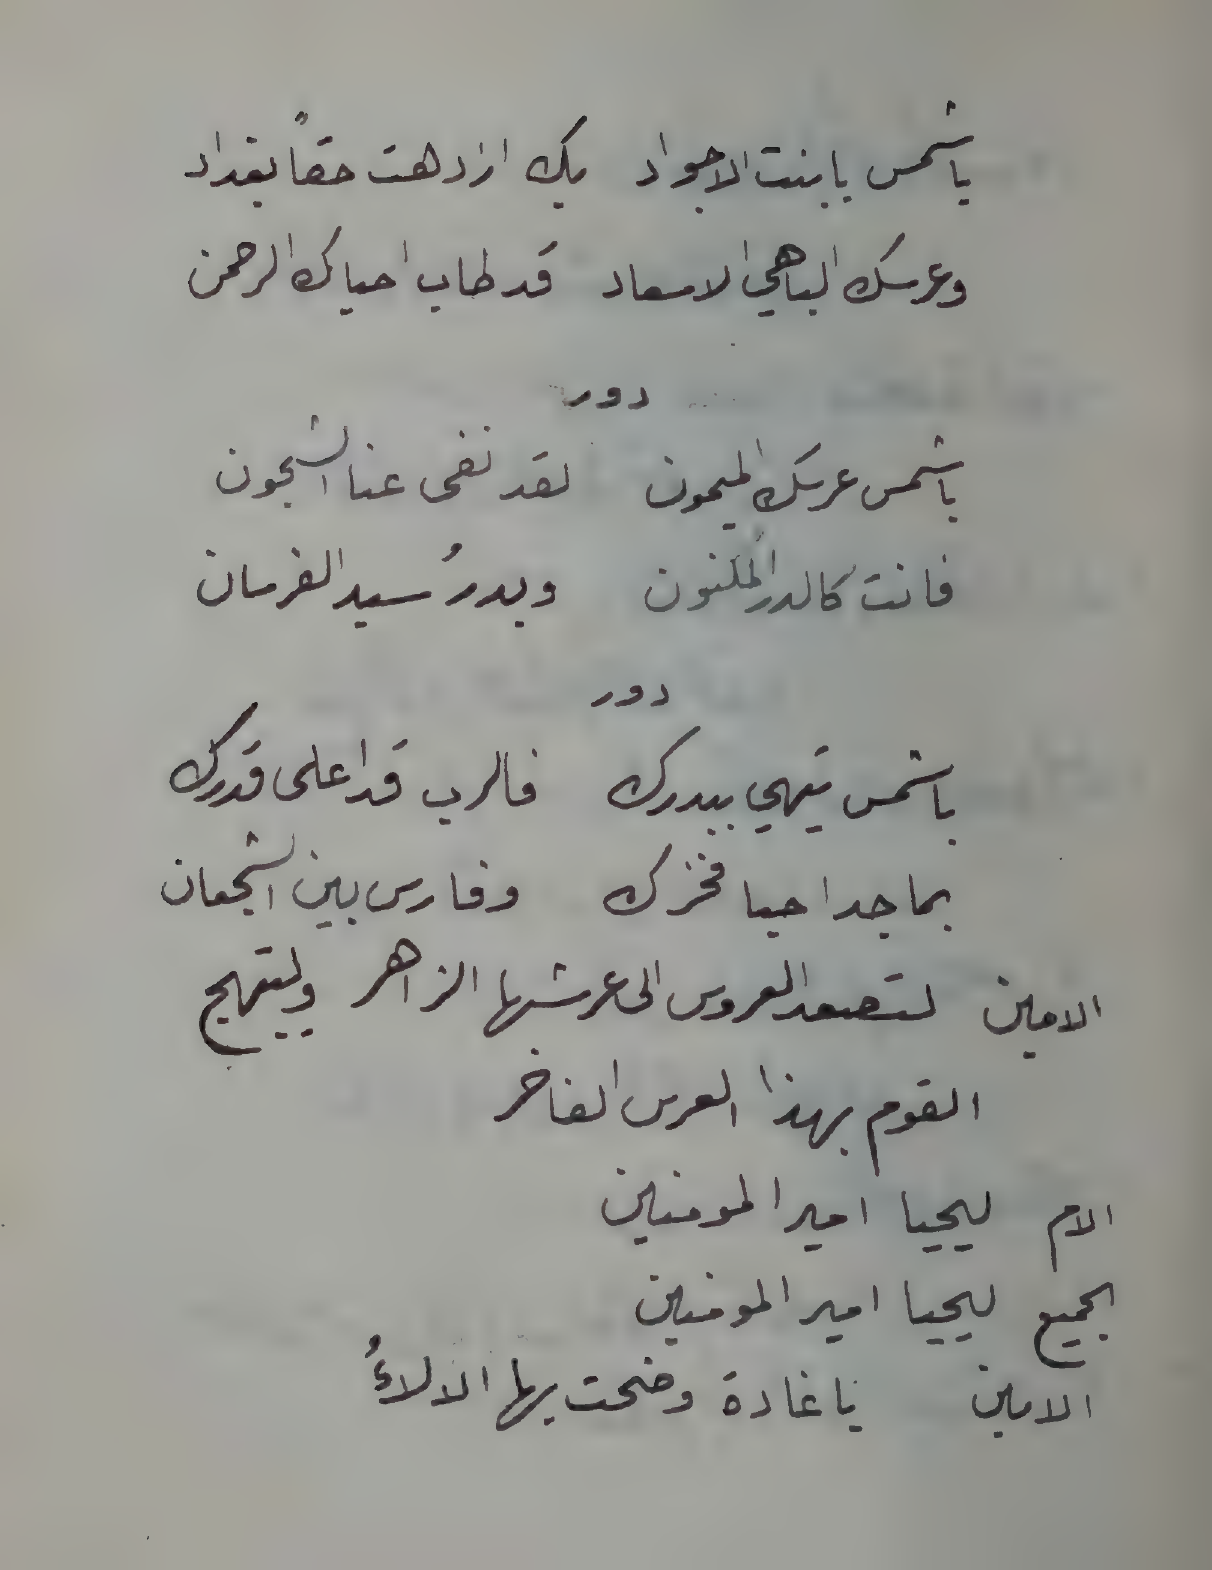 ياشمس يابنت الاجواد بك ازدهت حقاً بغداد
وعرسك الباهي الاسعاد قد طاب احياك الرحمن
دور
ياشمس عرسك الميمون لقد نفى عنا الشجون
فانت كالدر المكنون وبدرُ سيد الفرسان
دور
ياشمس تيهي ببدرك فالرب قد اعلى قدرك
بماجد احيا فخرك وفارس بين الشجعان
الامين لتصعد العروس الى عرشها الزاهر وليبتهج
القوم بهذا العرس الفاخر
الام ليحيا امير المومنين
الجميع ليحيا امير المومنين
الامين يا غادة وضحت بها الالاءُ